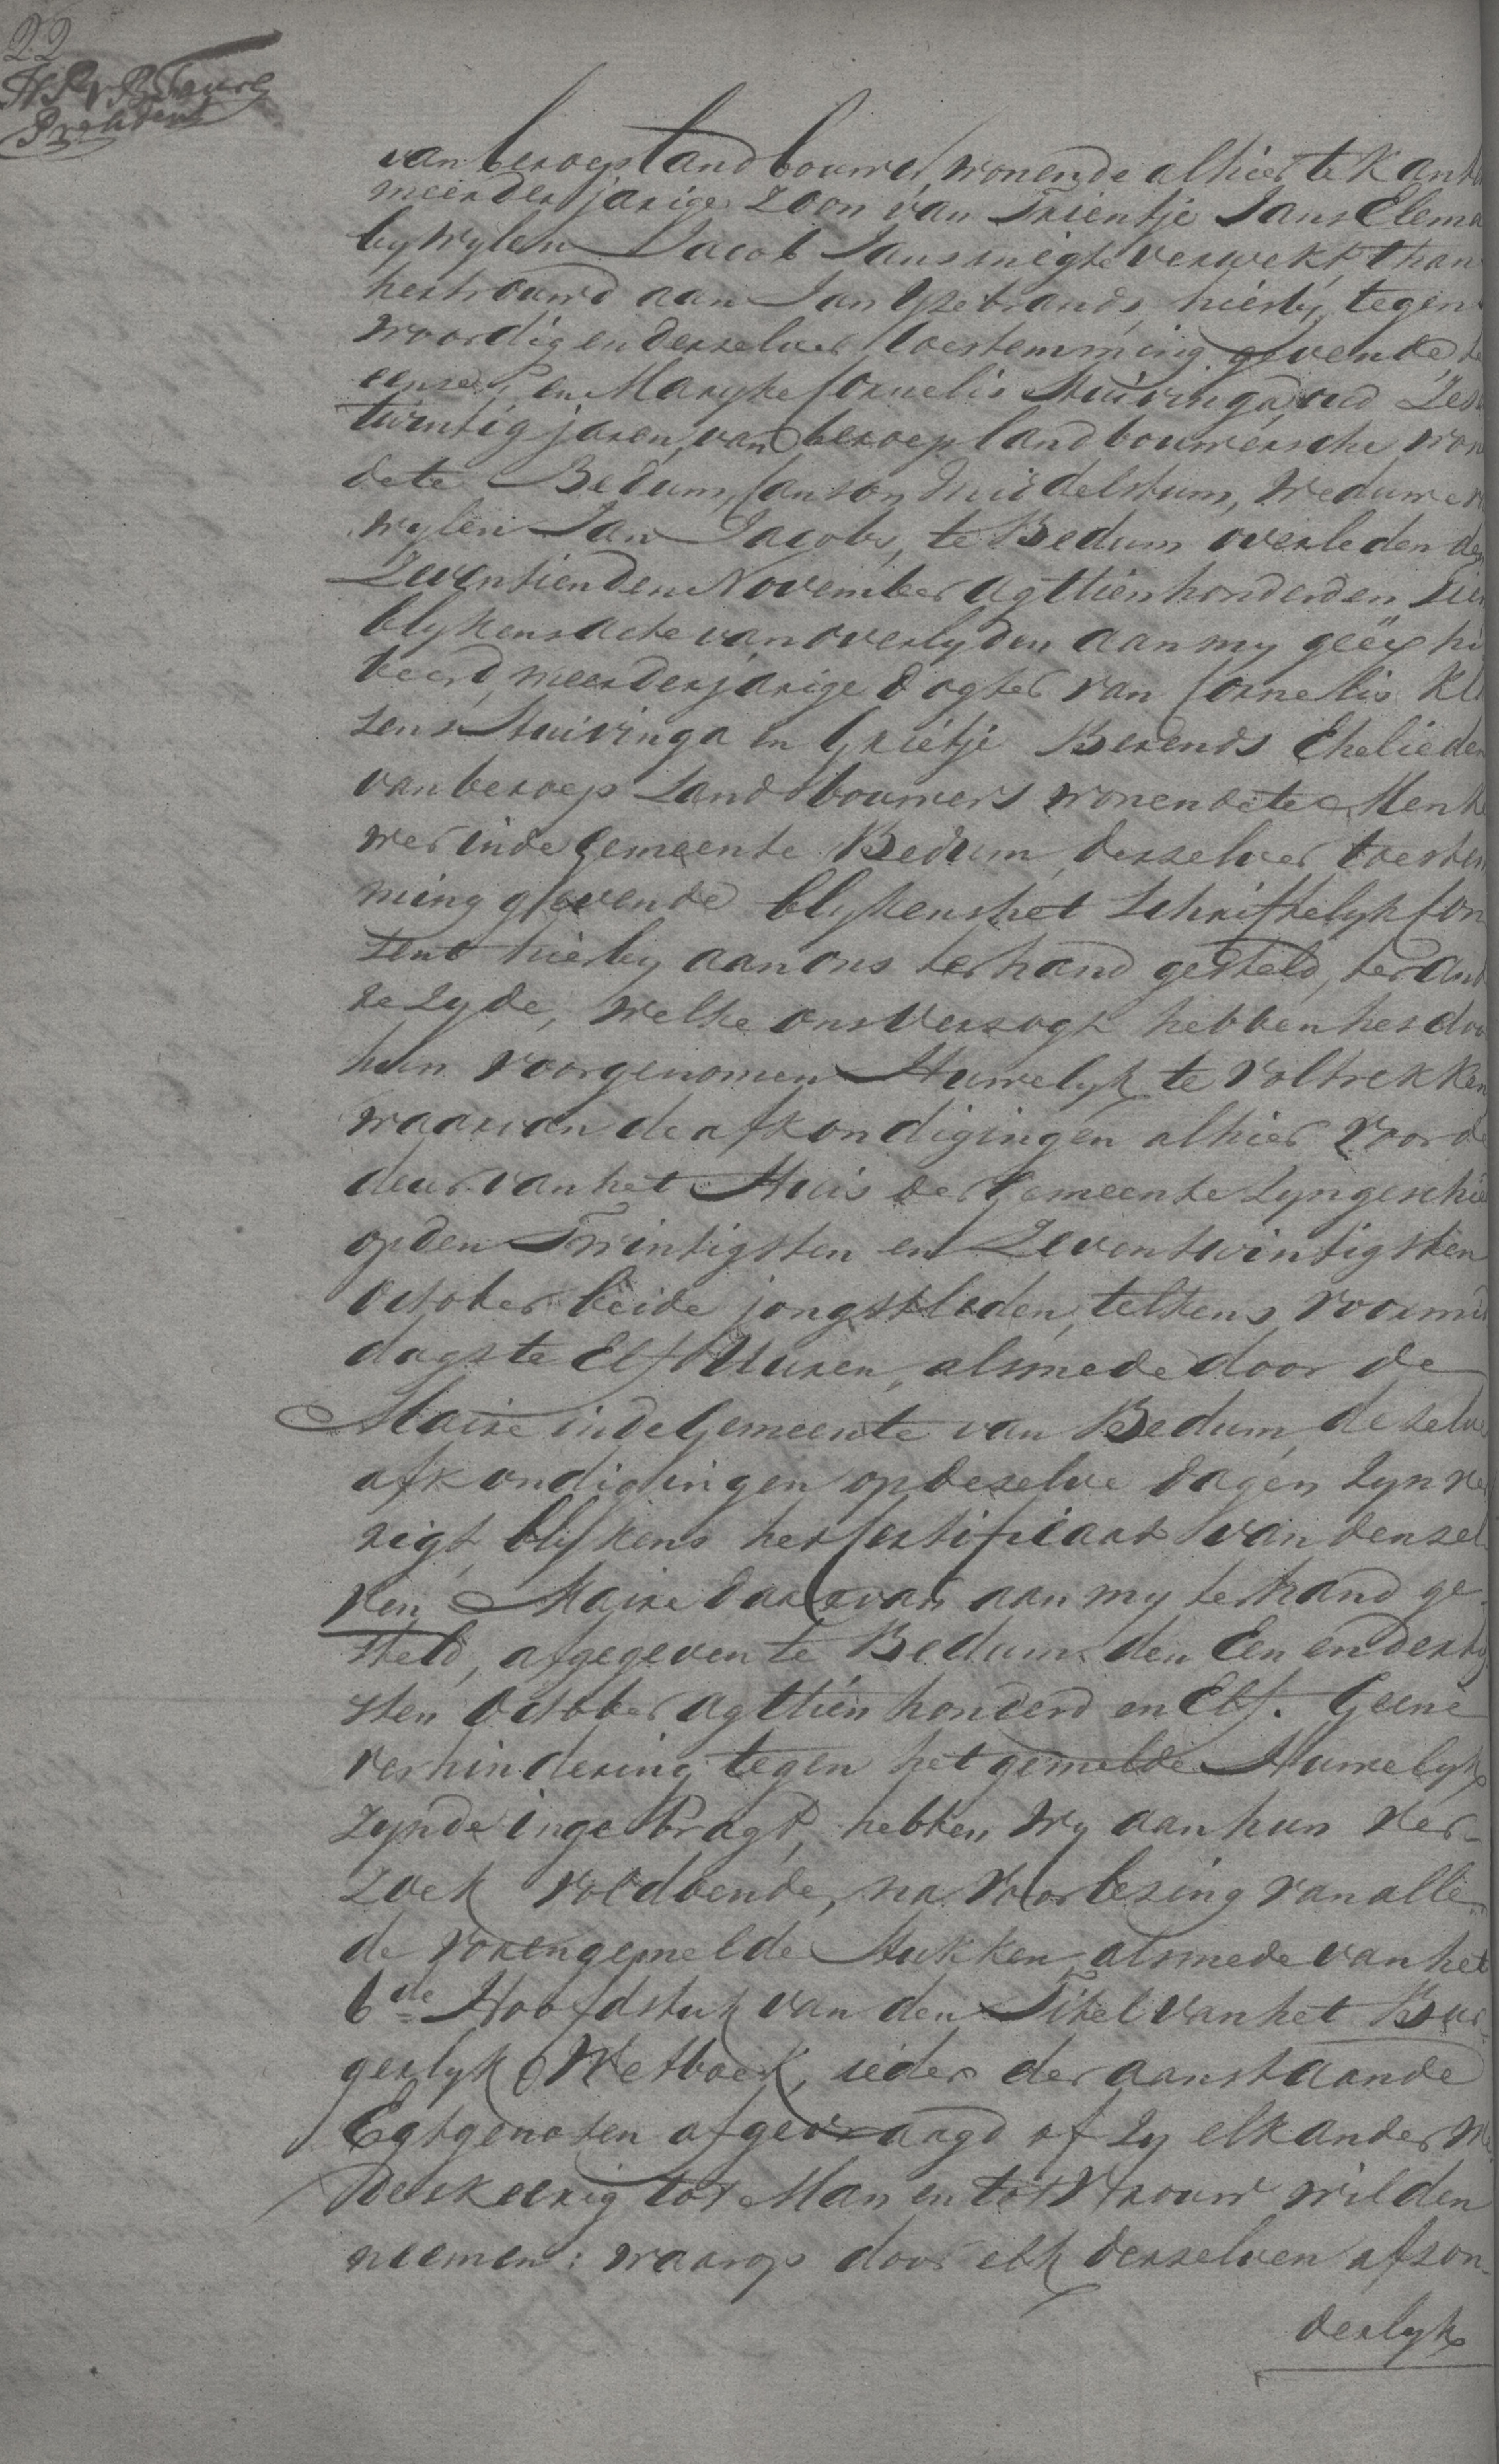 22
President
van beroep landbouwer, wonende alhier te Kant
meerderjarige Zoon van Trientje Jans Elema
by wylen Jacob Jans verwekt, than
hertrouwd aan Jan Ysebrands, hierby tegen
woordig en derzelver toestemming gevende, te
eenre, en Marytje Cornelis Stuivinga, oud Zes
twintig jaren, van beroep landbouwersche, won
de te Bedum, Canton Middelstum, Weduwe v
wylen Jan Jacobs, te Bedum overleden den
Zeventienden November agttienhonderd en tien
blykens acte van overlyden aan my geëxhi
beerd, meerderjarige dogter van Cornelis Kla
sens Stuivinga en Grietje Berends Ehelieden
van beroep Landbouwers wonende te Menke
wer in de Gemeente Bedum, derzelver toestem
ming gevende blykens het Schriftelyk Con
sent hierby aan ons ter hand gesteld, ter and
re Zyde, welke ons verzogt hebben het doo
hun voorgenomen Huwelyk te voltrekken
waarvan de afkondigingen alhier voor de
deur van het Huis der Gemeente zyn geschie
op den Twintigsten en Zeventwintigsten
October beide jongstleden, telkens voormid
dags te Elf Uuren, alsmede door de
Maire in de Gemeente van Bedum, dezelve
afkondigingen op dezelve dagen zyn ver
rigt, blykens het Certificaat van denzel
ven Maire daarvan aan my ter hand ge-
steld, afgegeven te Bedum den Een en dertig
sten October agttien honderd en Elf. Geene
verhindering tegen het gemelde Huwelyk
zynde ingebragt, hebben wy aan hun ver-
zoek voldoende, na voorlezing van alle
de vorengemelde Stukken, alsmede van het
6de Hoofdstuk van den Titel van het Bur-
gerlyk Wetboek, ieder der aanstaande
Egtgenoten afgevraagd of Zy elkander we
derkeerig tot Man en tot Vrouw wilden
neemen: waarop door elk derzelven afzon-
derlyk